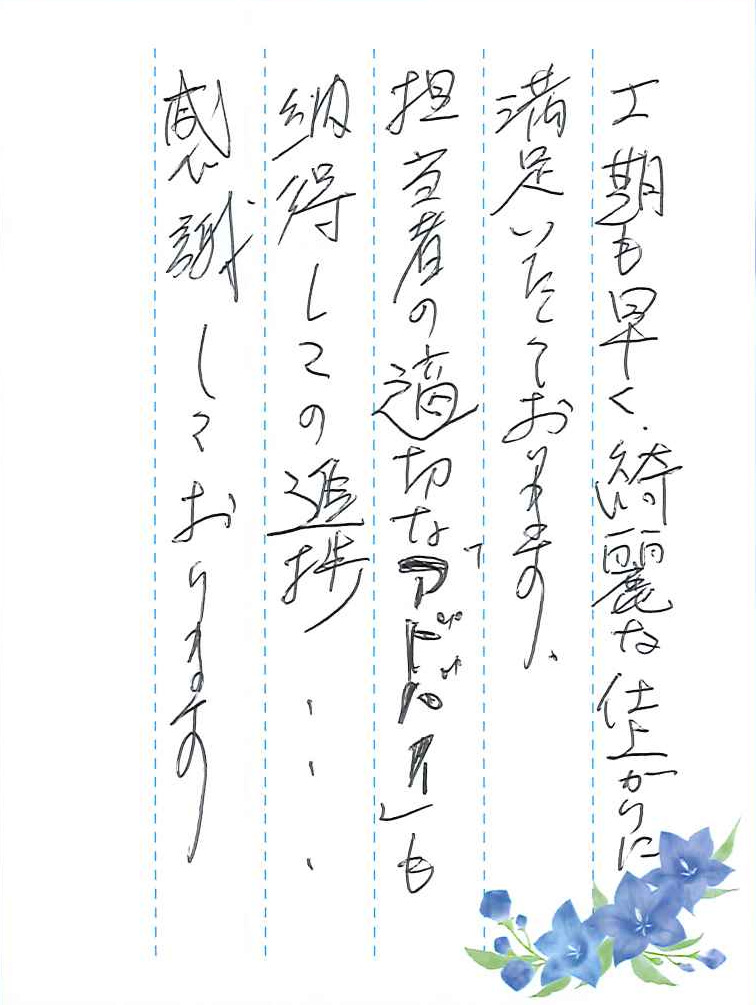 工期も早く、綺麗な仕上がりに
満足いたしております、
担当者の適切な「アドバイス」も
納得しての進捗・・・
感謝しております